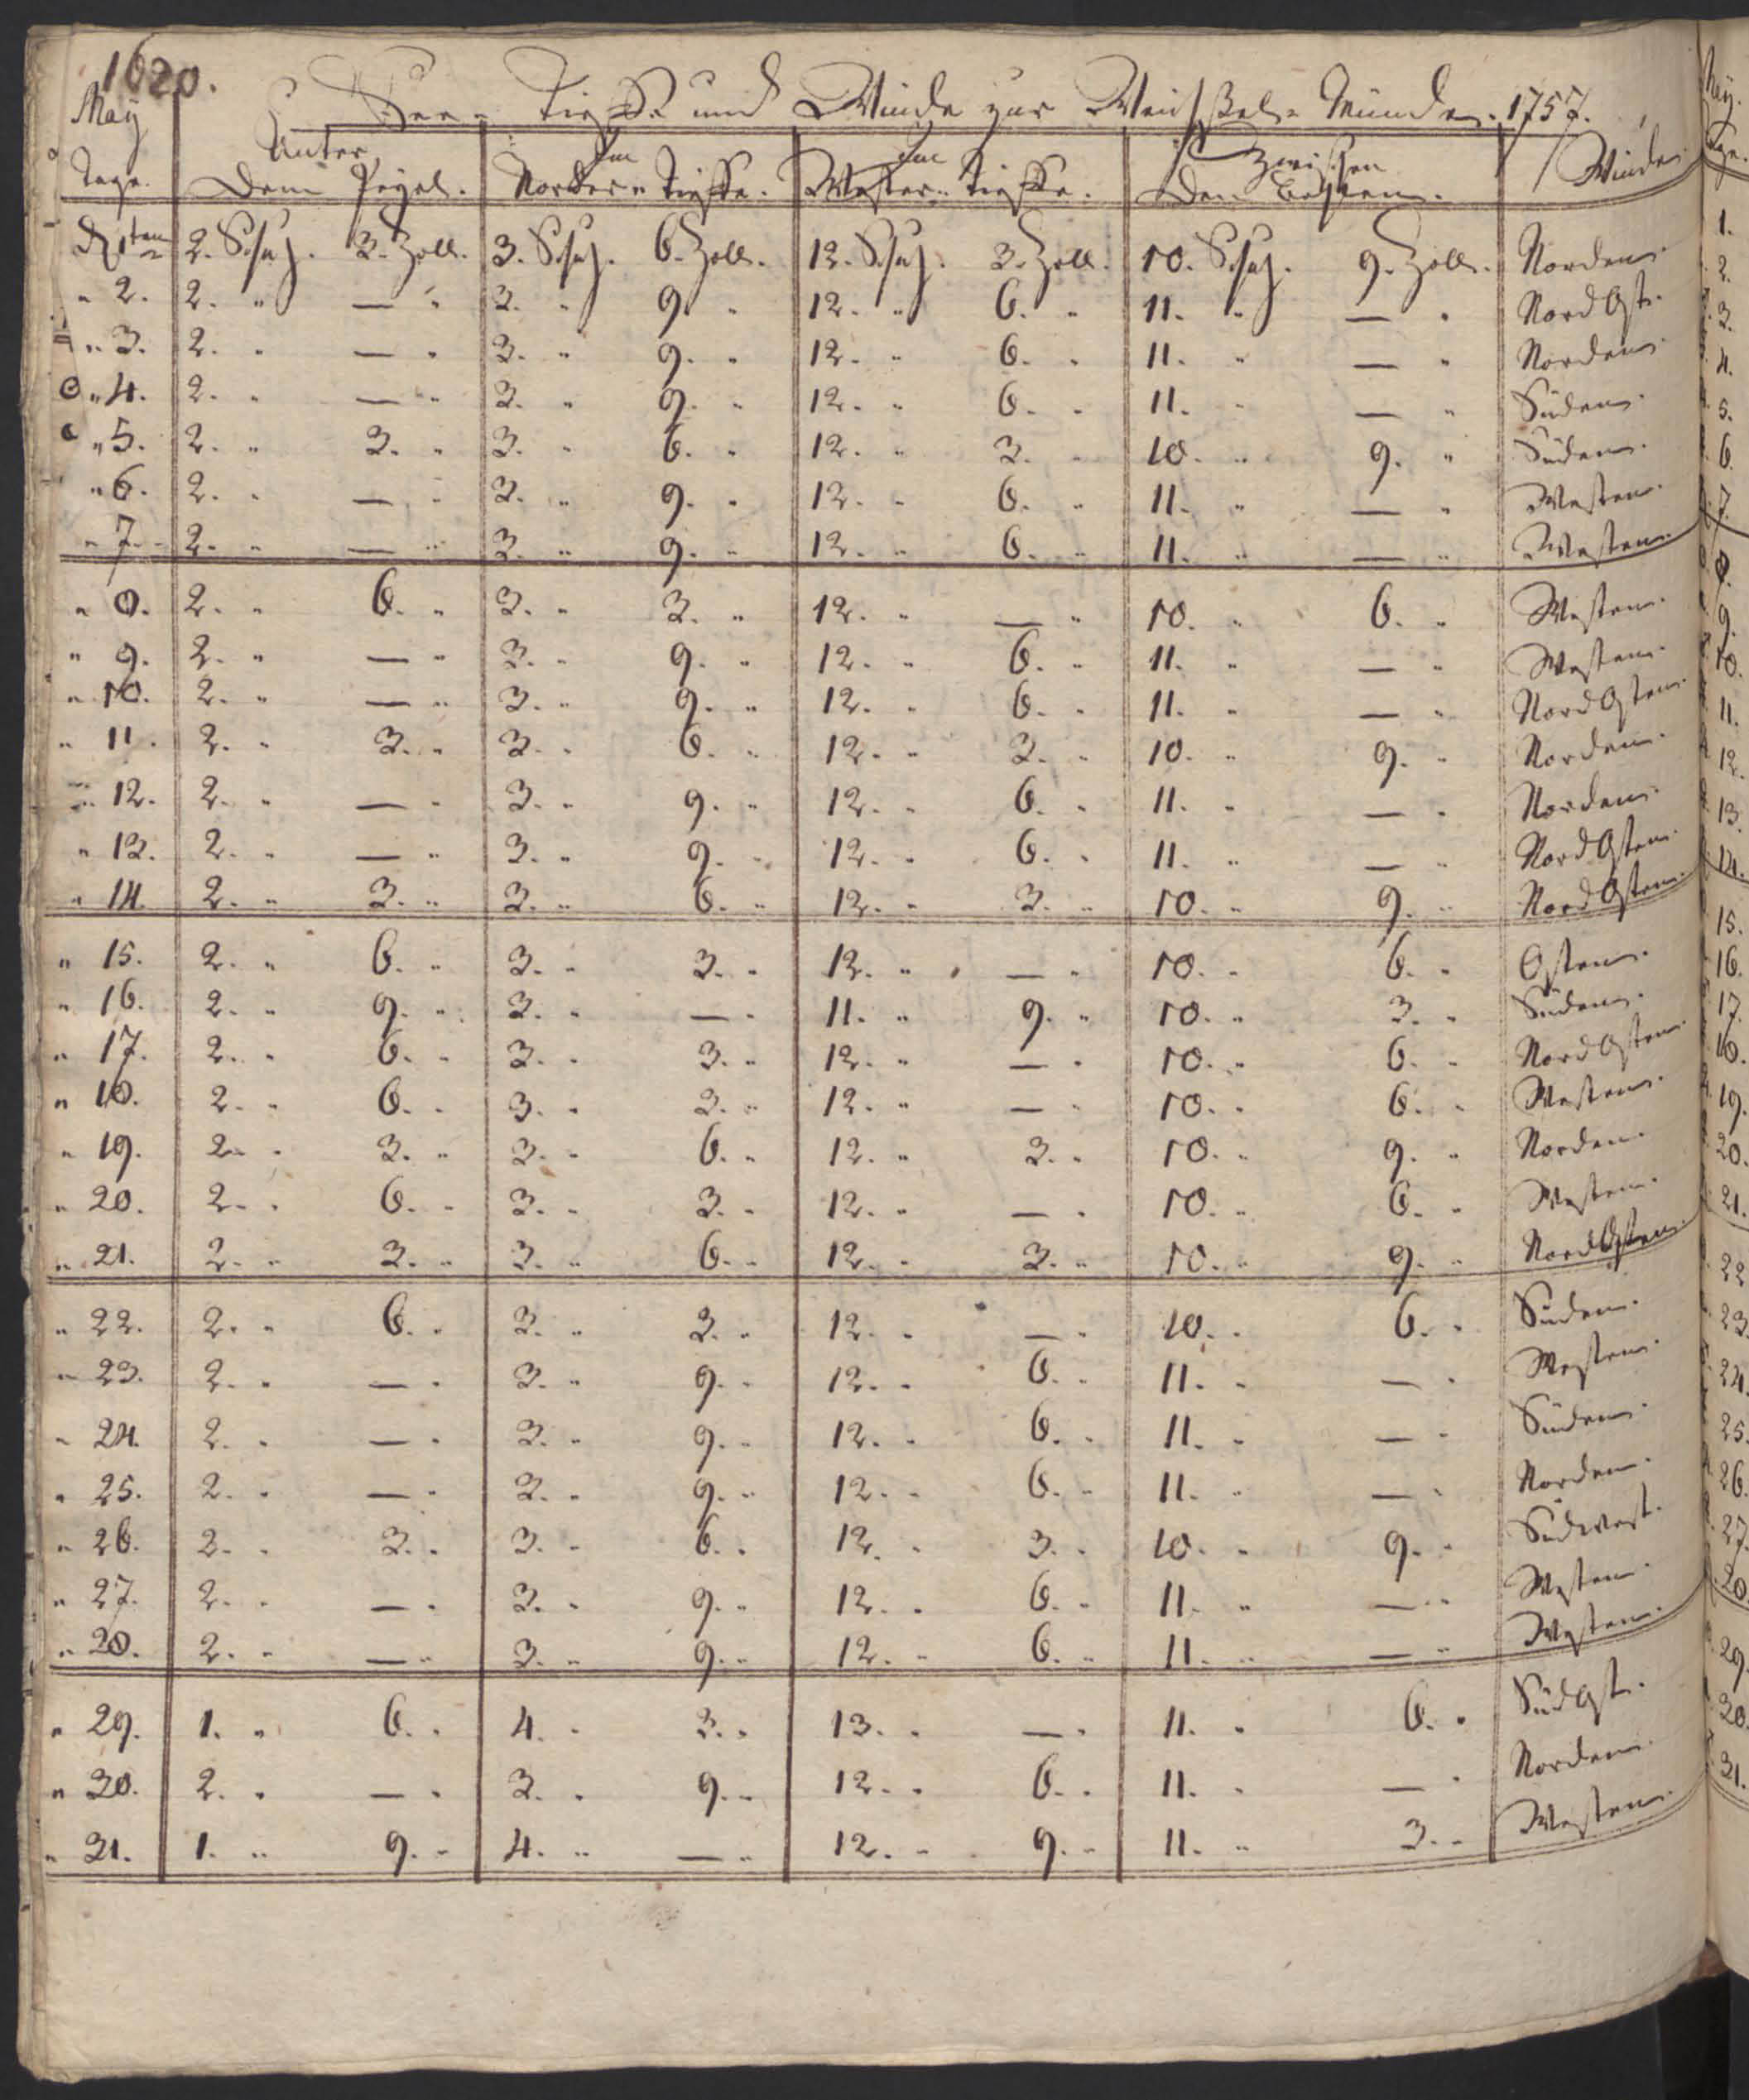 1620.
May
See- Tieffe und Winde zur Weichßel- Münde. 1757.
Tage. Unter dem Pegel. Im Norder- Tieffe. Im Wester- Tieffe. Zwischen den Winde.
d 1ten 2. Schuh. 3. Zoll. 3. Schuh. 6. Zoll. 12. Schuh. 3. Zoll. 10. Schuh. 9. Zoll. Norden.
" 2. 2. " — " 3. " 9. " 12. " 6. " 11. " — " Nord Ost.
" 3. 2. " — " 3. " 9. " 12. " 6. " 11. " — " Norden.
" 4. 2. " — " 3. " 9. " 12. " 6. " 11. " — " Süden.
" 5. 2. " 3. " 3. " 6. " 12. " 3. " 10. " 9. " Süden.
" 6. 2. " — " 3. " 9. " 12. " 6. " 11. " — " Westen.
" 7. 2. " — " 3. " 9. " 12. " 6. " 11. " — " Westen.
" 8. 2. " 6. " 3. " 3. " 12. " — " 10. " 6. " Westen.
" 9. 2. " — " 3. " 9. " 12. " 6. " 11. " — " Westen.
" 10. 2. " — " 3. " 9. " 12. " 6. " 11. " — " Nord Osten.
" 11. 2. " 3. " 3. " 6. " 12. " 3. " 10. " 9. " Norden.
" 12. 2. " — " 3. " 9. " 12. " 6. " 11. " — " Norden.
" 13. 2. " — " 3. " 9. " 12. " 6. " 11. " — " Nord Osten.
" 14. 2. " 3. " 3. " 6. " 12. " 3. " 10. " 9. " Nord Osten.
" 15. 2. " 6. " 3. " 3. " 12. " — " 10. " 6. " Osten.
" 16. 2. " 9. " 3. " — " 11. " 9. " 10. " 3. " Süden.
" 17. 2. " 6. " 3. " 3. " 12. " — " 10. " 6. " Nord Osten.
" 18. 2. " 6. " 3. " 3. " 12. " — " 10. " 6. " Westen.
" 19. 2. " 3. " 3. " 6. " 12. " 3. " 10. " 9. " Norden.
" 20. 2. " 6. " 3. " 3. " 12. " — " 10. " 6. " Westen.
" 21. 2. " 3. " 3. " 6. " 12. " 3. " 10. " 9. " Nord Osten.
" 22. 2. " 6. " 3. " 3. " 12. " — " 10. " 6. " Süden.
" 23. 2. " — " 3. " 9. " 12. " 6. " 11. " — " Westen.
" 24. 2. " — " 3. " 9. " 12. " 6. " 11. " — " Süden.
" 25. 2. " — " 3. " 9. " 12. " 6. " 11. " — " Norden.
" 26. 2. " 3. " 3. " 6. " 12. " 3. " 10. " 9. " Südwest.
" 27. 2. " — " 3. " 9. " 12. " 6. " 11. " — " Westen.
" 28. 2. " — " 3. " 9. " 12. " 6. " 11. " — " Westen.
" 29. 1. " 6. " 4. " 3. " 13. " — " 11. " 6. " Süd Ost.
" 30. 2. " — " 3. " 9. " 12. " 6. " 11. " — " Norden.
" 31. 1. " 9. " 4. " — " 12. " 9. " 11. " 3. " Westen.